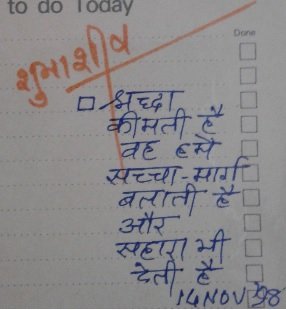 to do Today
Done
शुभाशीष
श्रध्दा
कीमती है
वह हमे
सच्चा-मार्ग
बताती है
और
सहारा भी
देती है
14 NOV 98